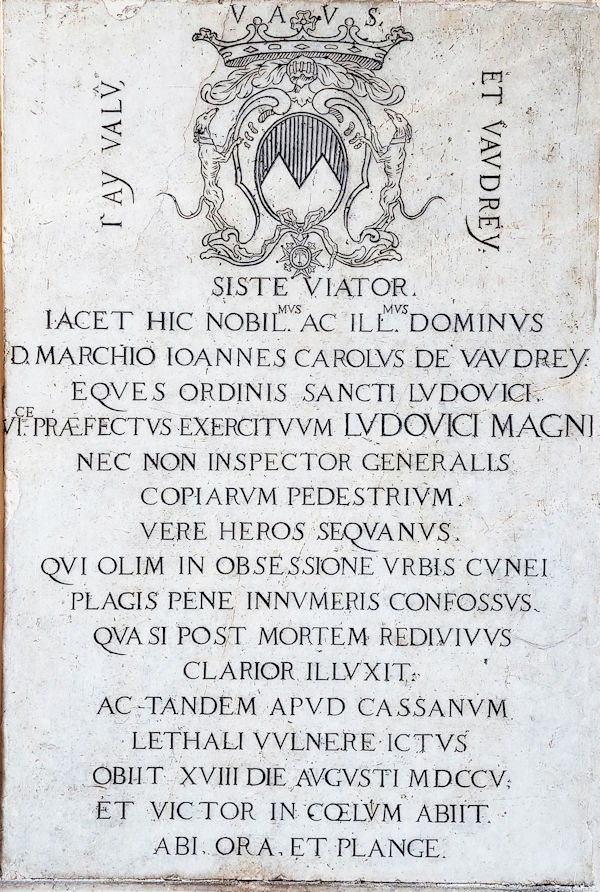 VAVS.
I'AY VALV,
ET VAVDREY.
SISTE VIATOR.
IACET HIC NOBIL.MVS AC ILL.MVS DOMINVS
D. MARCHIO IOANNES CAROLVS DE VAVDREY.
EQVES ORDINIS SANCTI LVDOVICI.
VI.CE PRÆFECTVS EXERCITVVM LVDOVICI MAGNI
NEC NON INSPECTOR GENERALIS
COPIARVM PEDESTRIVM.
VERE HEROS SEQVANVS.
QVI OLIM IN OBSESSIONE VRBIS CVNEI
PLAGIS PENE INNVMERIS CONFOSSVS.
QVASI POST MORTEM REDIVIVVS
CLARIOR ILLVXIT.
AC TANDEM APVD CASSANVM
LETHALI VVLNERE ICTVS
OBIIT XVIII DIE AVGVSTI MDCCV.
ET VICTOR IN CŒLVM ABIIT.
ABI, ORA, ET PLANGE.